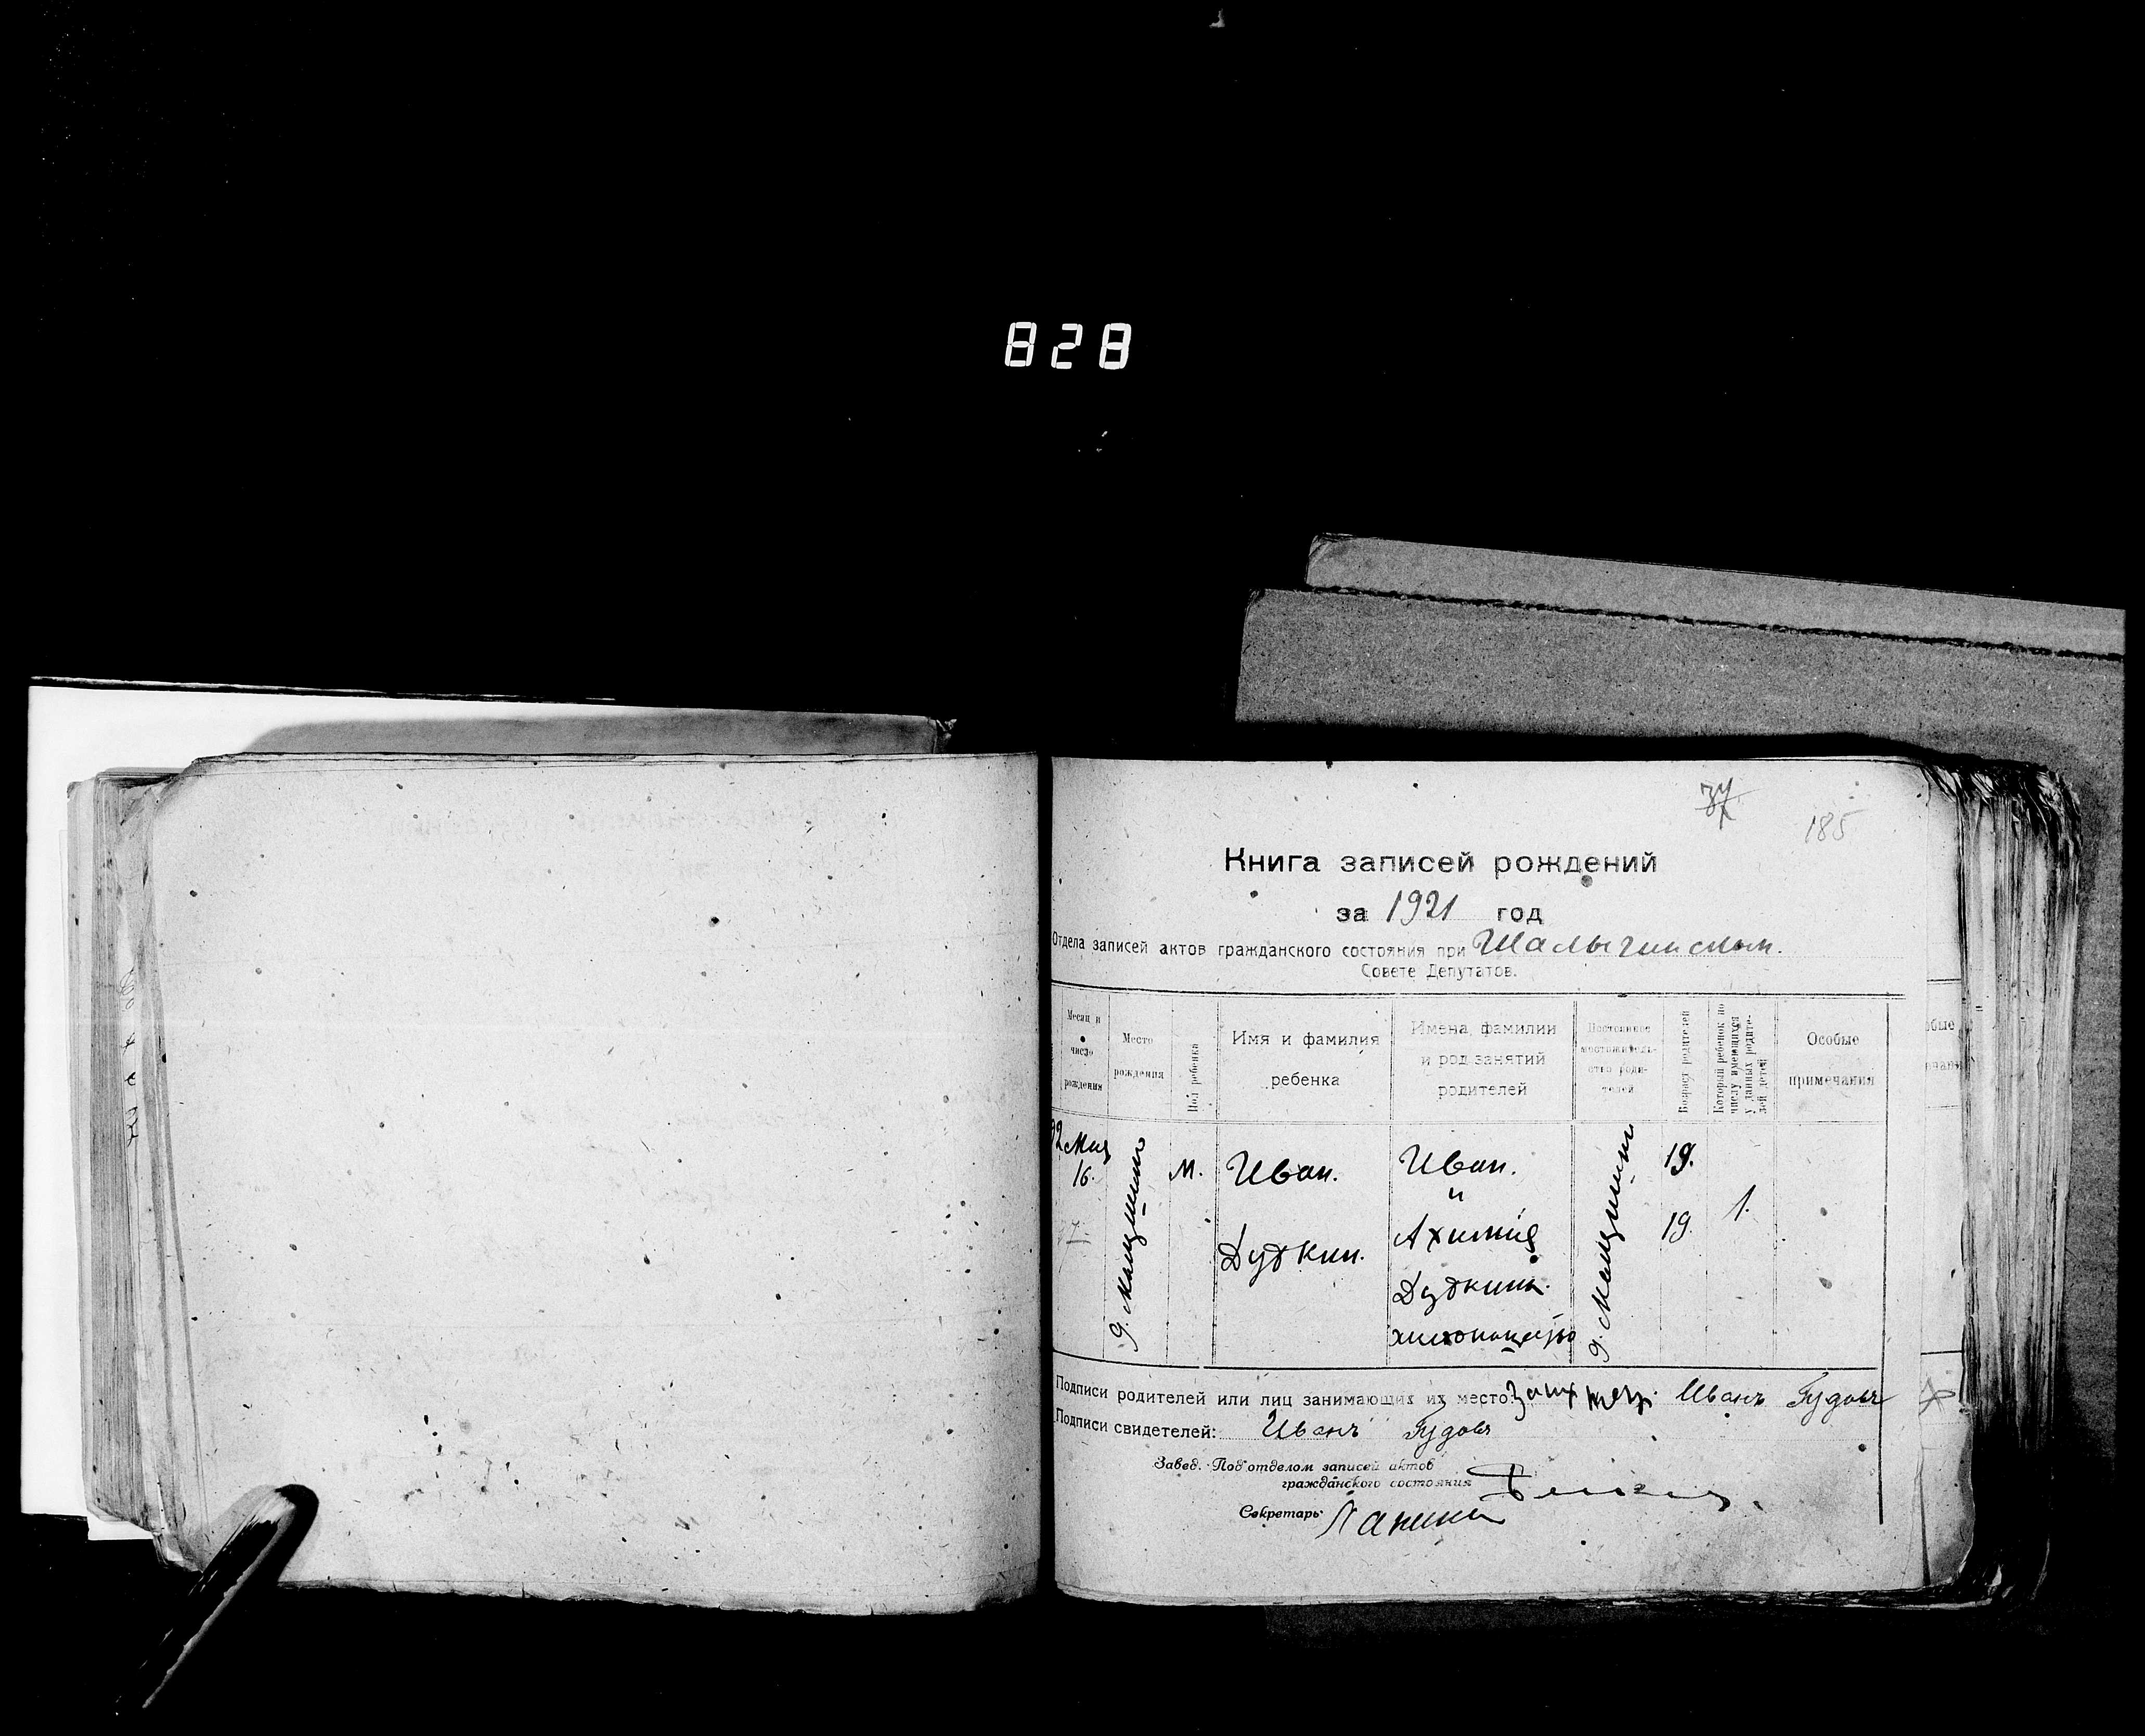 828
37
185
Книга записей рождений
за 1921 год
Отдела записей актов гражданского состояния при Шалыгинском.
Совете Депутатов.
Месяц и число рождения
Место рождения
Пол ребенка
Имя и фамилия ребенка
Имена, фамилии и род занятий родителей
Постоянное местожительство родителей
Возраст родителей
Который ребенок по числу имеющихся у данных родителей детей
Особые примечания
Мая
16.
М.
Иван.
Дудкин.
Иван.
и
Дудкины.
19.
19.
1.
Подписи родителей или лиц занимающих их место: Иванъ Гудовъ
Подписи свидетелей: Иванъ Гудовъ
Завед. Подотделом записей актов
гражданского состояния
Секретарь